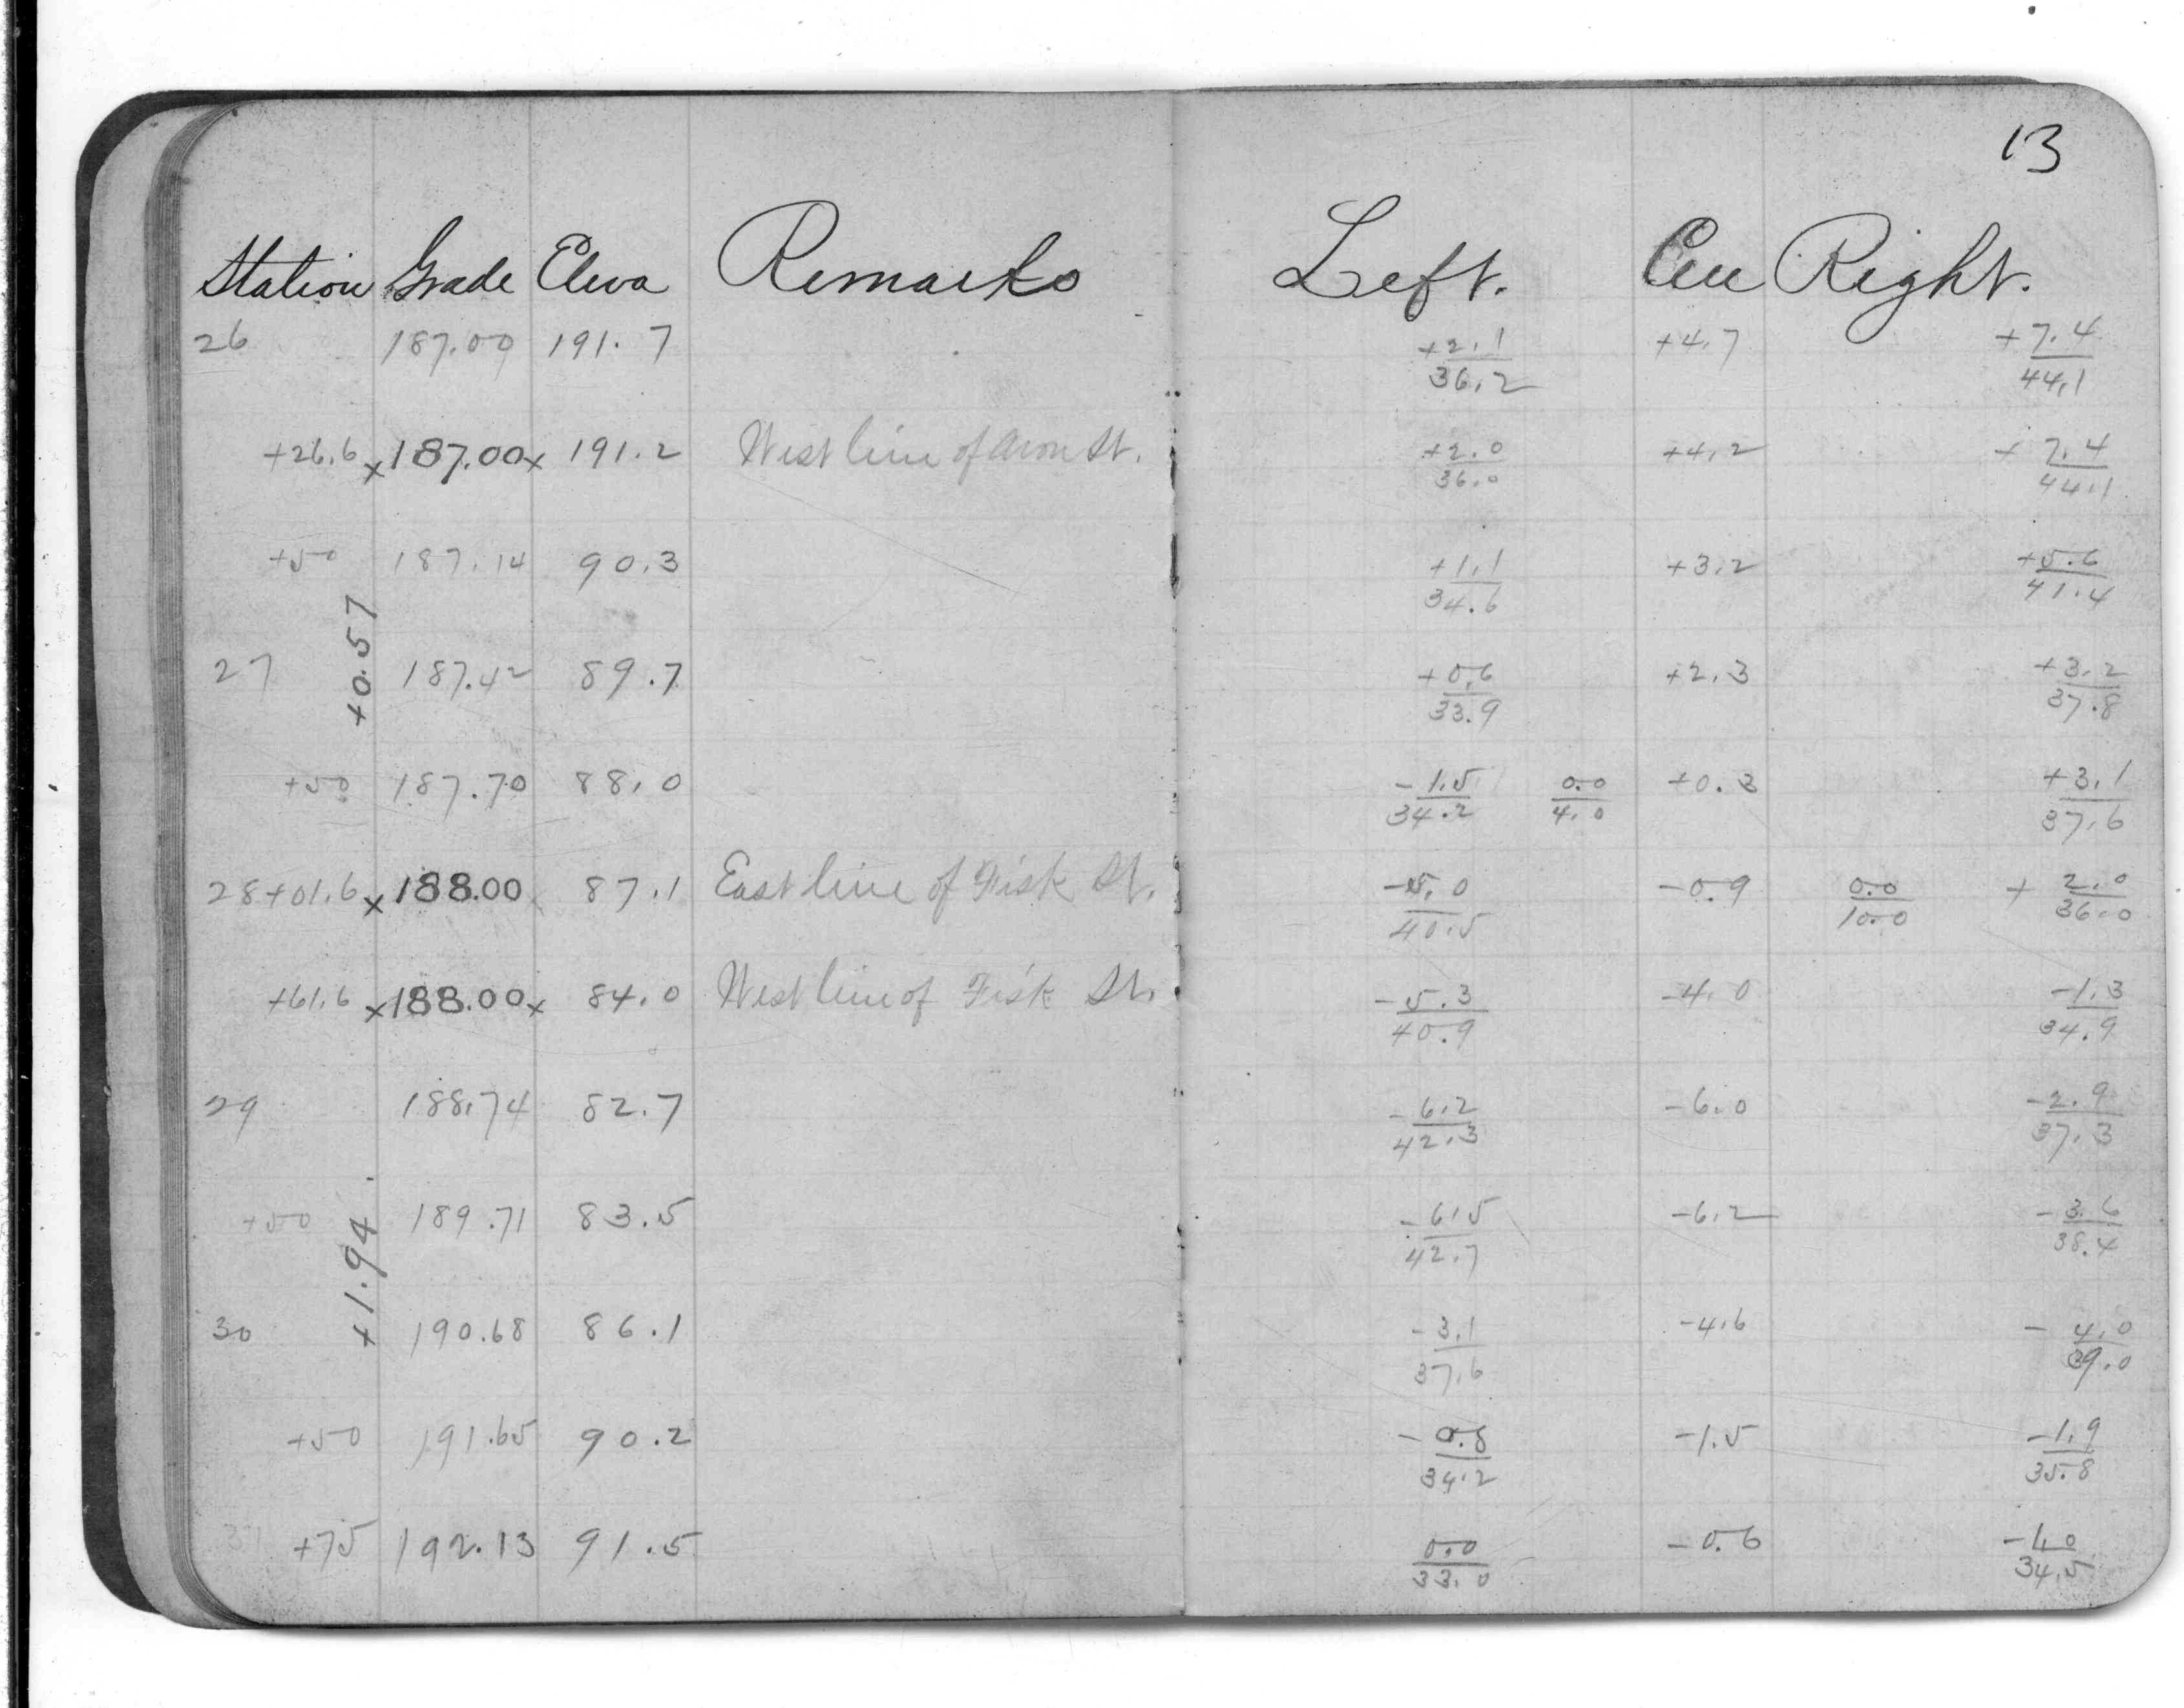 13
Station Grade Eleva Remarks Left. Cen Right.
26 187.00 191.7 +2.1/36.2 +4.7 +7.4/44.1
+26.6 x 187.00 x 191.2 West line of Avon St. +2.0/36.0 +4.2 +7.4/44.1
+50 187.14 90.3 +1.1/34.6 +3.2 +5.6/41.4
+0.57
27 187.42 89.7 +0.6/33.9 +2.3 +3.2/37.8
+50 187.70 88.0 -1.5/34.2 0.0/4.0 +0.3 +3.1/37.6
28+01.6 x 188.00 x 87.1 East line of Fisk St. -5.0/40.5 -0.9 0.0/10.0 +2.0/36.0
+61.6 x 188.00 x 84.0 West line of Fisk St. -5.3/40.9 -4.0 -1.3/34.9
29 188.74 82.7 -6.2/42.3 -6.0 -2.9/37.3
+50 189.71 83.5 -6.5/42.7 -6.2 -3.6/38.4
+1.94
30 190.68 86.1 -3.1/37.6 -4.6 -4.0/39.0
+50 191.65 90.2 -0.8/34.2 -1.5 -1.9/35.8
+75 192.13 91.5 0.0/33.0 -0.6 -1.0/34.5